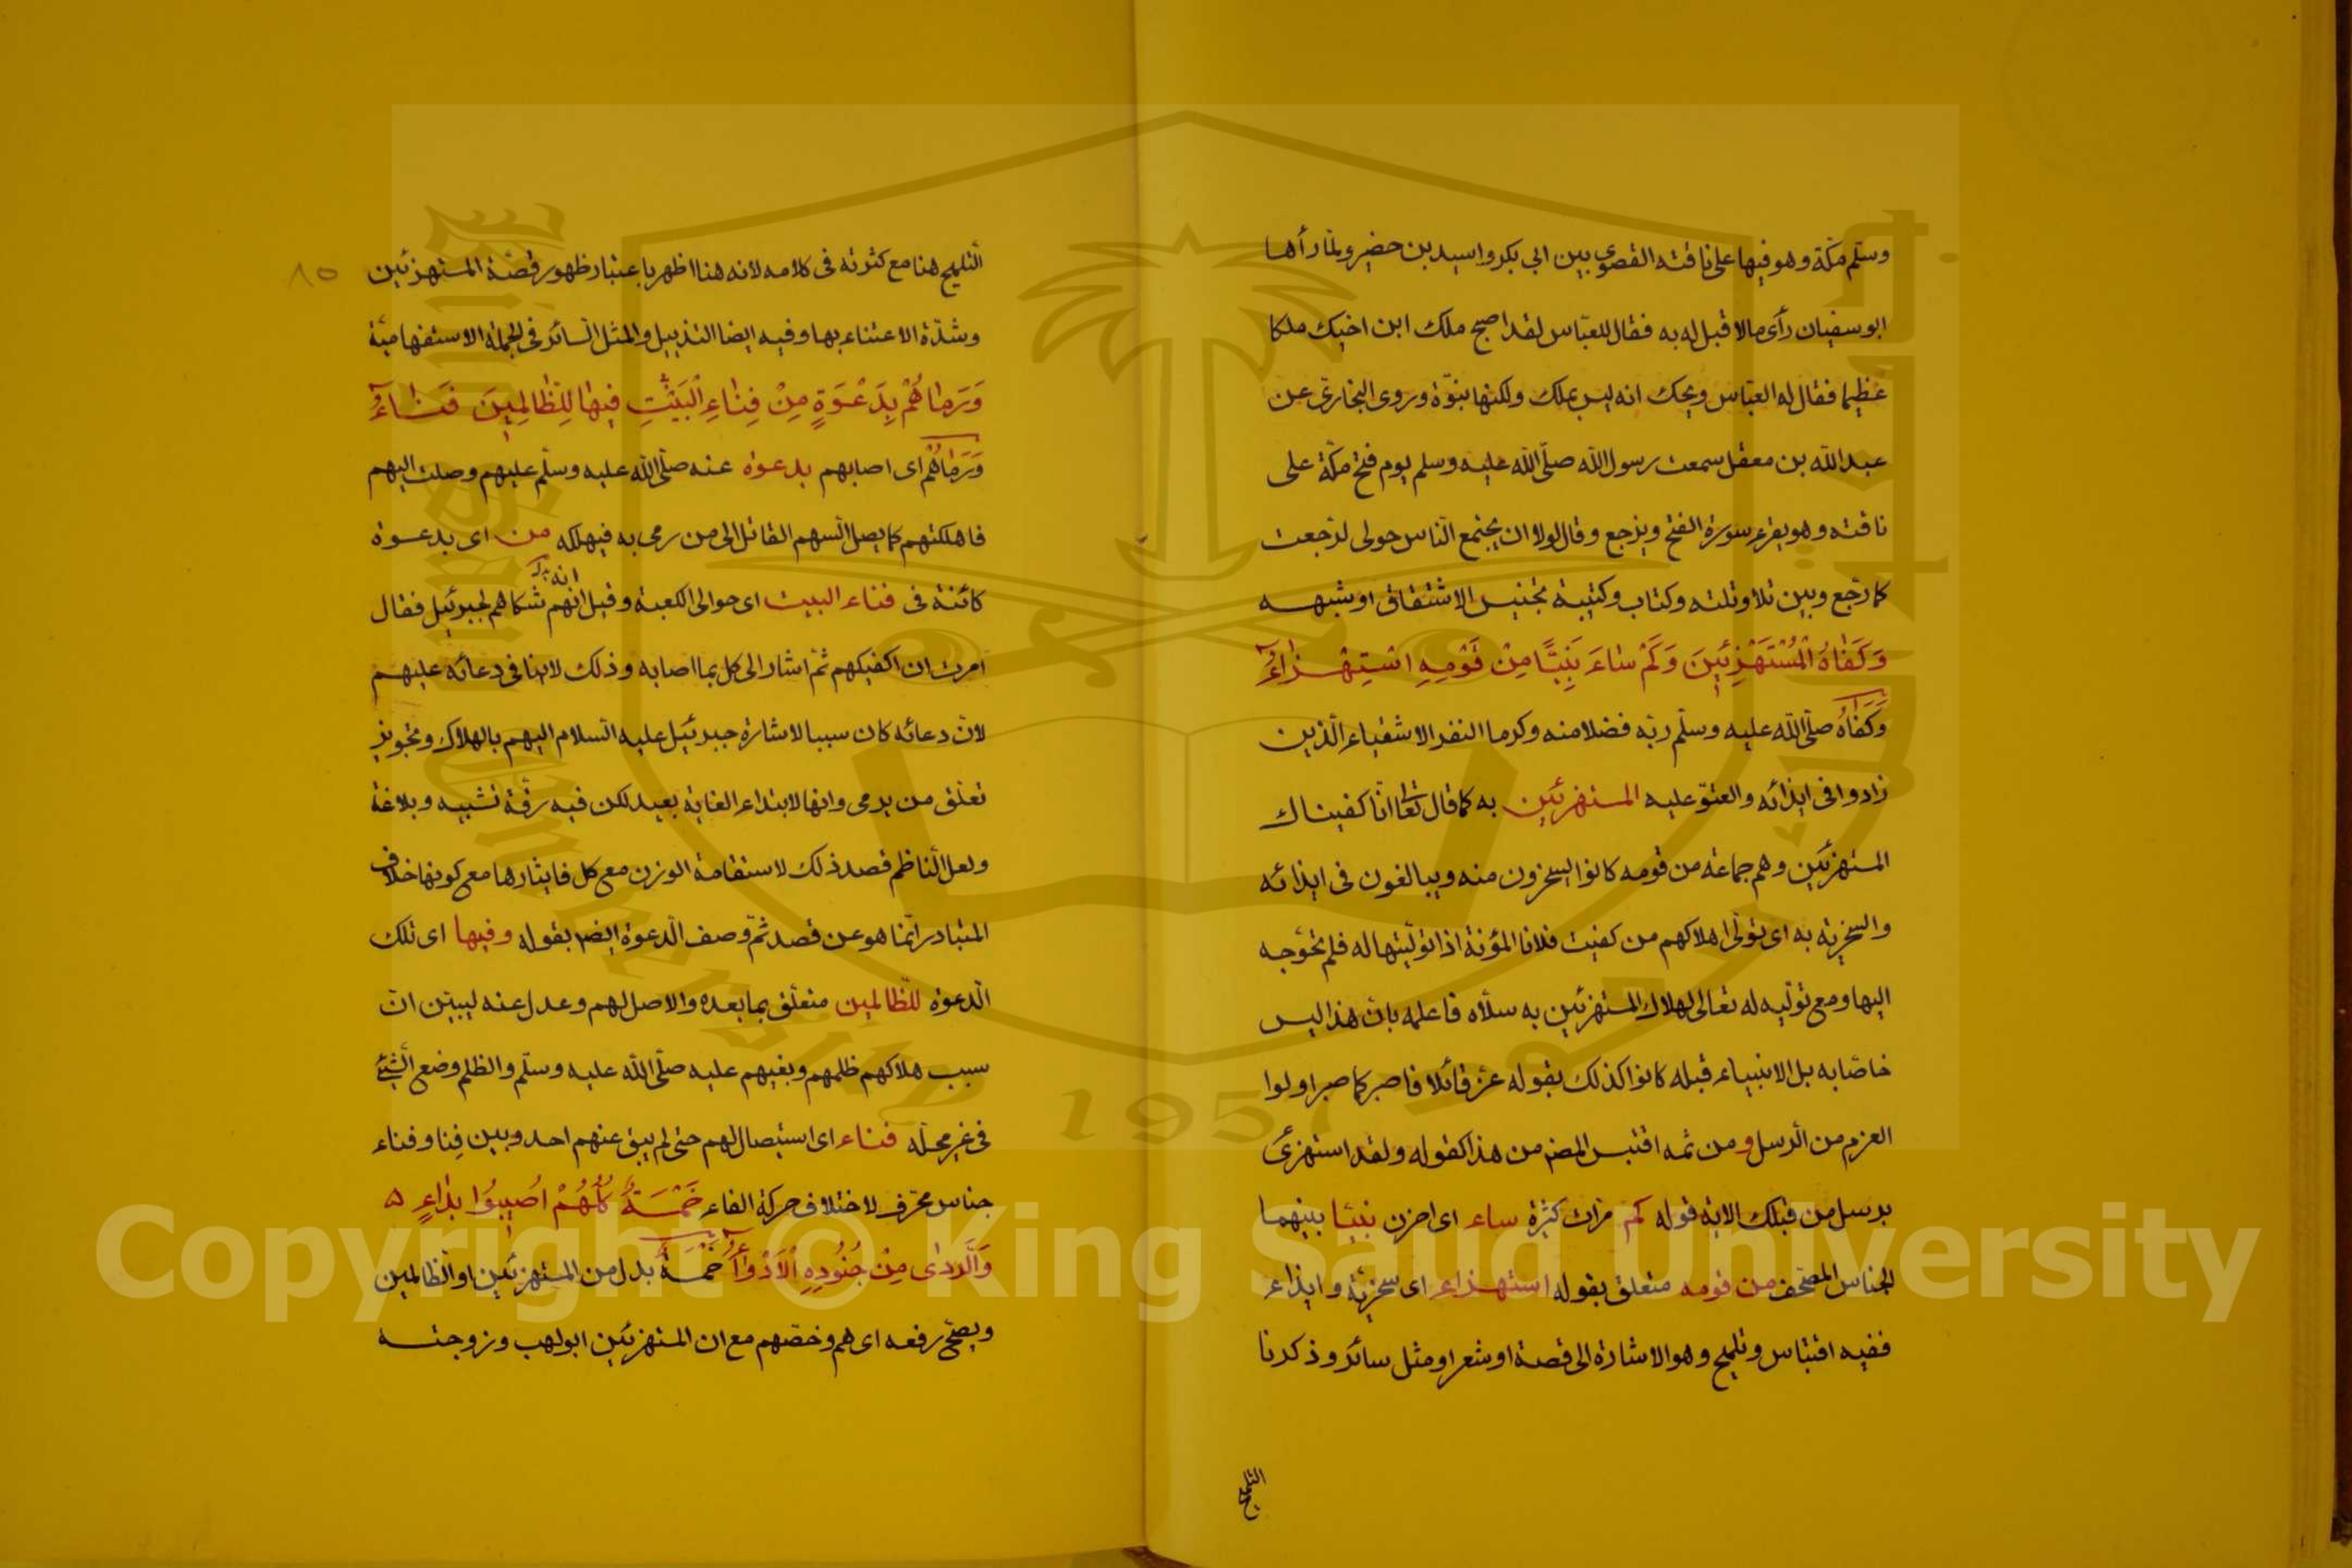 وسلّم مكّة وهو فيها على ناقته القصوى بين ابى بكر واسيد بن حضير ولمّا رأها
ابو سفيان رأى مالا قبل له به فقال للعبّاس لقد اصبح ملك ابن اخيك ملكا
عظيما فقال له العبّاس ويحك انه ليس بملك ولكنها نبوّة وروى البخارى عن
عبد الله بن مغفل سمعت رسول الله صلّى الله عليه وسلم يوم فتح مكّة على
ناقته وهو يقرء سورة الفتح ويرجع وقال لولا ان يجتمع النّاس حولى لرجعت
كما رجّع وبين تلا وتلته وكتاب وكتيبة تجنيس الاشتقاق او شبهه
وَكَفَاهُ الْمُسْتَهْزِئِينَ وَكَمْ سَاءَ نَبِيًّا مِنْ قَوْمِهِ اسْتِهْزَاءُ
وَكَفَاهُ صلّى الله عليه وسلّم ربّه فضلا منه وكرما النفر الاشقياء الّذين
زادوا فى ايذائه والعتوّ عليه المستهزئين به كما قال تعالى انّا كفيناك
المستهزئين وهم جماعة من قومه كانوا يسخرون منه ويبالغون فى ايذائه
والسخرية به اى تولّى اهلاكهم من كفيت فلانا المؤنة اذا تولّيتها له فلم تحوجه
اليها ومع تولّيه له تعالى لهلاك المستهزئين به سلّاه فاعلمه بانّ هذا ليس
خاصّا به بل الانبياء قبله كانوا كذلك بقوله عزّ قائلا فاصبر كما صبر اولوا
العزم من الرسل ومن ثمه اقتبس المصـ من هذا كقوله ولقد استهزئ
برسل من قبلك الاية قوله كم مرات كثيرة ساء اى احزن نبيّا بينهما
الجناس المصحّف من قومه متعلق بقوله استهزاء اى سخريّة وايذاء
ففيه اقتباس وتلميح وهو الاشارة الى قصة او شعر او مثل سائر وذكرنا
التلميح
٨٥
التلميح هنا مع كثرته فى كلامه لانه هنا اظهر باعتبار ظهور قصّة المستهزئين
وشدّة الاعتناء بها وفيه ايضا التذييل والمثل السائر فى الجملة الاستفهاميّة
وَرَمَاهُمْ بِدَعْوَةٍ مِنْ فِنَاءِ الْبَيْتِ فِيهَا لِلظَّالِمِينَ فَنَاءُ
وَرَمَاهُمْ اى اصابهم بدعوة عنه صلّى الله عليه وسلّم عليهم وصلت اليهم
فاهلكتهم كما يصل السهم القاتل الى من رمى به فيهلكه من اى بدعوة
كائنة فى فناء البيت اى حوالى الكعبة وقيل انهم انه شكاهم لجبرئيل فقال
امرت ان اكفيكهم ثمّ اشار الى كل بما اصابه وذلك لا ينافى دعائه عليهم
لانّ دعائه كان سببا لاشارة جبرئيل عليه السلام اليهم بالهلاك وتجويز
تعلّق من برمى وانها لابتداء الغاية بعيد لكن فيه رقّة تشبيه وبلاغة
ولعل النّاظم قصد ذلك لاستقامة الوزن مع كل فايثارها مع كونها خلاف
المتبادر انّما هو عن قصد ثمّ وصف الدعوة ايضا بقوله وفيها اى تلك
الدعوة للظالمين متعلّق بما بعده والاصل لهم وعدل عنه ليبيّن انّ
سبب هلاكهم ظلمهم وبغيهم عليه صلّى الله عليه وسلّم والظلم وضع الشيئ
فى غير محلّه فناء اى استيصال لهم حتى لم يبق عنهم احد وبين فِنا وفناء
جناس محرّف لاختلاف حركة الفاء خَمْسَةٌ كُلُّهُمْ اُصِيبُوا بِدَاءٍ ۵
وَالرَّدَى مِنْ جُنُودِهِ الْاَدْوَاءُ خَمْسَةٌ بدل من المستهزئين او الظالمين
ويصحّ رفعه اى هم وخصّهم مع ان المستهزئين ابو لهب وزوجته
Copyright © King Saud University
King Saud University
1957